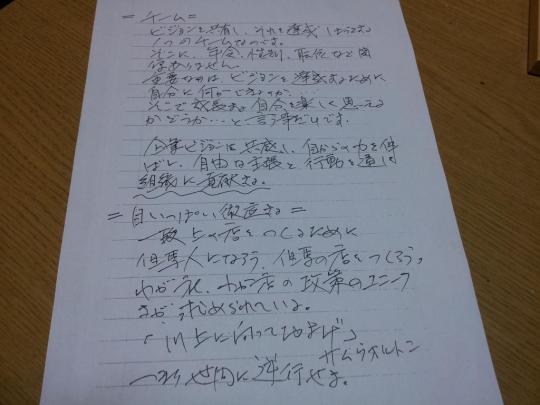 = チーム =
ビジョンを共有し、それを達成しようとする
1つのチームなのです。
そこに、年令、性別、職位など関
係ありません。
重要なのは、ビジョンを達成するために
自分に何ができるのか、…
そこで成長する自分を楽しく思える
かどうか…と言う事だけです。
企業ビジョンに共感し、自からの力を伸
ばし、自由な主張と行動を通じ
組織に貢献する。
= 目いっぱい徹底する =
一歩上の店をつくるために
但馬人になろう、但馬の店をつくろう。
わが社、わが店の政策のユニーク
さが求められている。
「川上に向って
サムウオルトン
世間に逆行せよ。